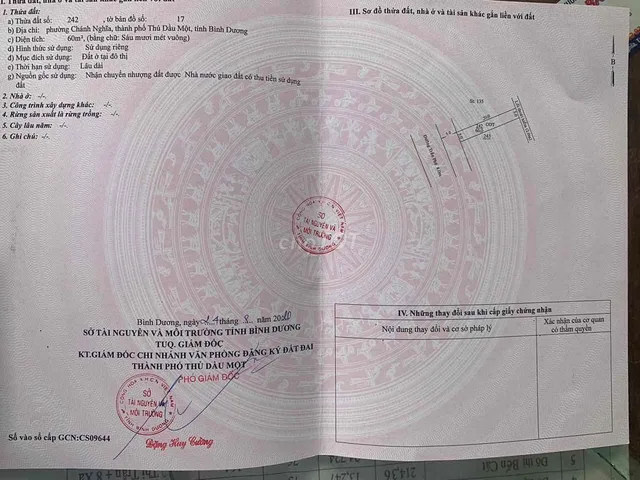 I. Thửa đất, nhà ở và tài sản khác gắn liền với đất
1. Thửa đất:
a) Thửa đất số: 242 , tờ bản đồ số: 17
b) Địa chỉ: phường Chánh Nghĩa, thành phố Thủ Dầu Một, tỉnh Bình Dương
c) Diện tích: 60m², (bằng chữ: Sáu mươi mét vuông)
d) Hình thức sử dụng: Sử dụng riêng
đ) Mục đích sử dụng: Đất ở tại đô thị
e) Thời hạn sử dụng: Lâu dài
g) Nguồn gốc sử dụng: Nhận chuyển nhượng đất được Nhà nước giao đất có thu tiền sử dụng
đất
2. Nhà ở: -/-
3. Công trình xây dựng khác: -/-
4. Rừng sản xuất là rừng trồng: -/-
5. Cây lâu năm: -/-
6. Ghi chú: -/-
Bình Dương, ngày 14 tháng 8 năm 2020
SỞ TÀI NGUYÊN VÀ MÔI TRƯỜNG TỈNH BÌNH DƯƠNG
TUQ. GIÁM ĐỐC
KT.GIÁM ĐỐC CHI NHÁNH VĂN PHÒNG ĐĂNG KÝ ĐẤT ĐAI
THÀNH PHỐ THỦ DẦU MỘT
PHÓ GIÁM ĐỐC
CỘNG HÒA X.H.C.N VIỆT NAM
SỞ
TÀI NGUYÊN VÀ
MÔI TRƯỜNG
TỈNH BÌNH DƯƠNG
Đặng Huy Cường
Số vào sổ cấp GCN:CS09644
III. Sơ đồ thửa đất, nhà ở và tài sản khác gắn liền với đất
B
ODT
243
CỘNG HÒA X.H.C.N VIỆT NAM
SỞ
TÀI NGUYÊN VÀ
MÔI TRƯỜNG
TỈNH BÌNH DƯƠNG
IV. Những thay đổi sau khi cấp giấy chứng nhận
Nội dung thay đổi và cơ sở pháp lý
Xác nhận của cơ quan
có thẩm quyền
5 Đô thị Bến Cát 214,36 13,247